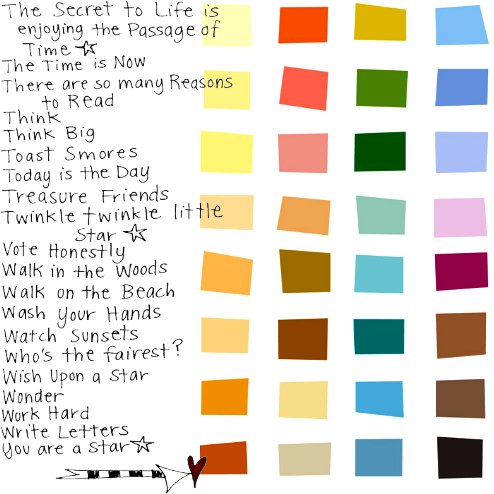 The Secret to Life is
enjoying the Passage of
Time
The Time is Now
There are so many Reasons
to Read
Think
Think Big
Toast Smores
Today is the Day
Treasure Friends
Twinkle twinkle little
Star
Vote Honestly
Walk in the Woods
Walk on the Beach
Wash your Hands
Watch Sunsets
Who's the fairest?
Wish Upon a Star
Wonder
Work Hard
Write Letters
You are a Star